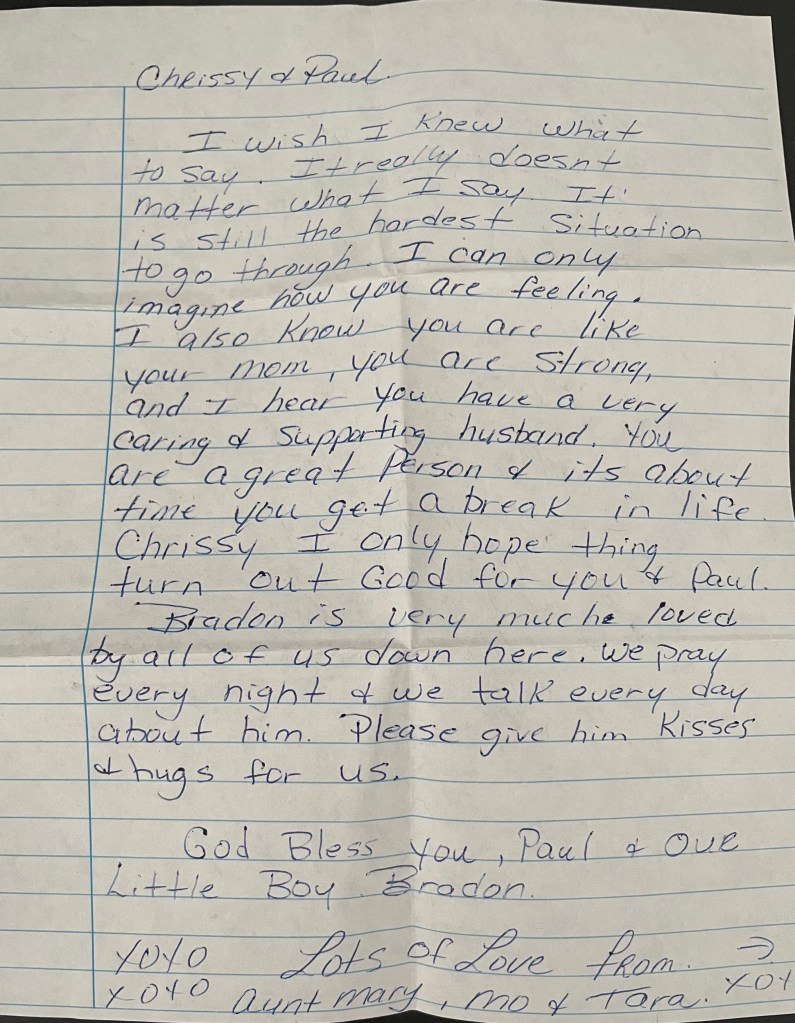 Chrissy & Paul
I wish I knew what
to say. It really doesnt
matter what I say. It
is still the hardest situation
to go through. I can only
imagine how you are feeling.
I also know you are like
your mom, you are strong,
and I hear you have a very
caring & supporting husband. You
are a great Person & its about
time you get a break in life.
Chrissy I only hope thing
turn out Good for you & Paul.
Bradon is very muche loved
by all of us down here. We pray
every night & we talk every day
about him. Please give him Kisses
& hugs for us.
God Bless you, Paul & Our
Little Boy Bradon.
XOXO Lots of Love from. →
XOXO Aunt mary, mo & Tara. XOX